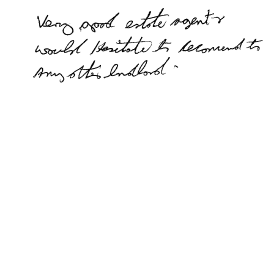 Very good estate agent &
would Hesitate to recomend to
any other landlord.